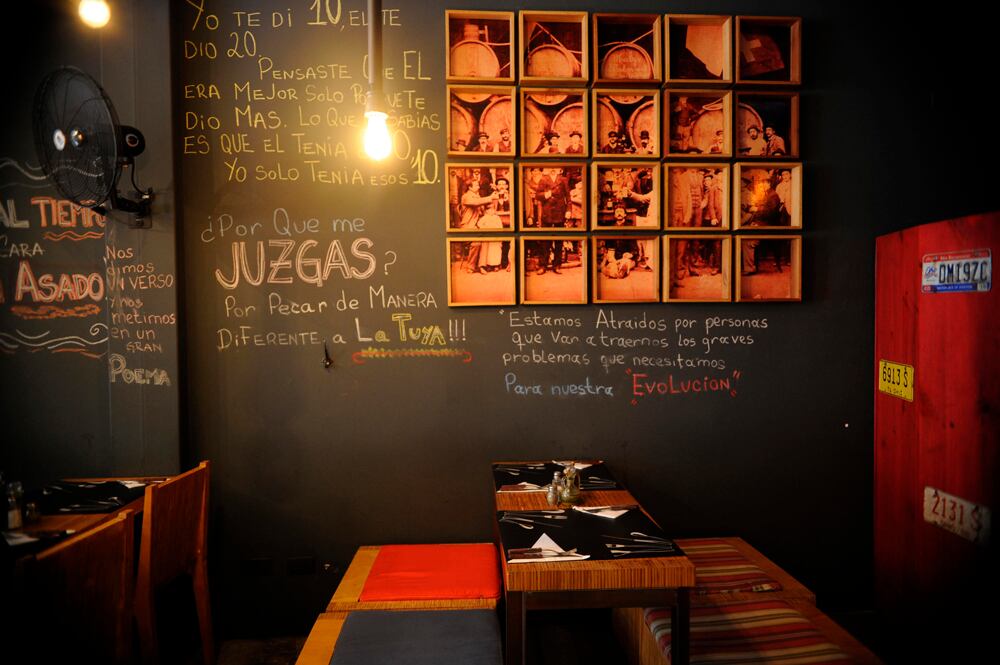 Yo TE DI 10, EL TE
DIO 20.
PENSASTE QUE EL
ERA MEJOR SOLO TE
DIO MAS. LO QUE
ES QUE EL TENIA
YO SOLO TENIA ESOS 10.
¿Por Que me
JUZGAS?
Por Pecar de MANERA
DiFERENTE a La TUYA!!!
"Estamos Atraidos por personas
que van a traernos los graves
problemas que necesitamos
Para nuestra "EVOLUCION"
AL TIEMPO
CARA
ASADO
Nos
UN VERSO
y nos
metimos
en un
GRAN
POEMA
DM19ZC
6913 S
2131 S